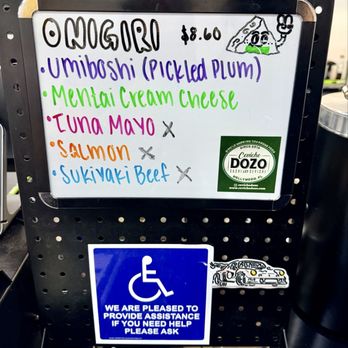 ONIGIRI $8.60
• Umiboshi (Pickled Plum)
• Mentai Cream Cheese
• Tuna Mayo X
• Salmon X
• Sukiyaki Beef X
Ceviche
DOZO
WE ARE PLEASED TO
PROVIDE ASSISTANCE
IF YOU NEED HELP
PLEASE ASK